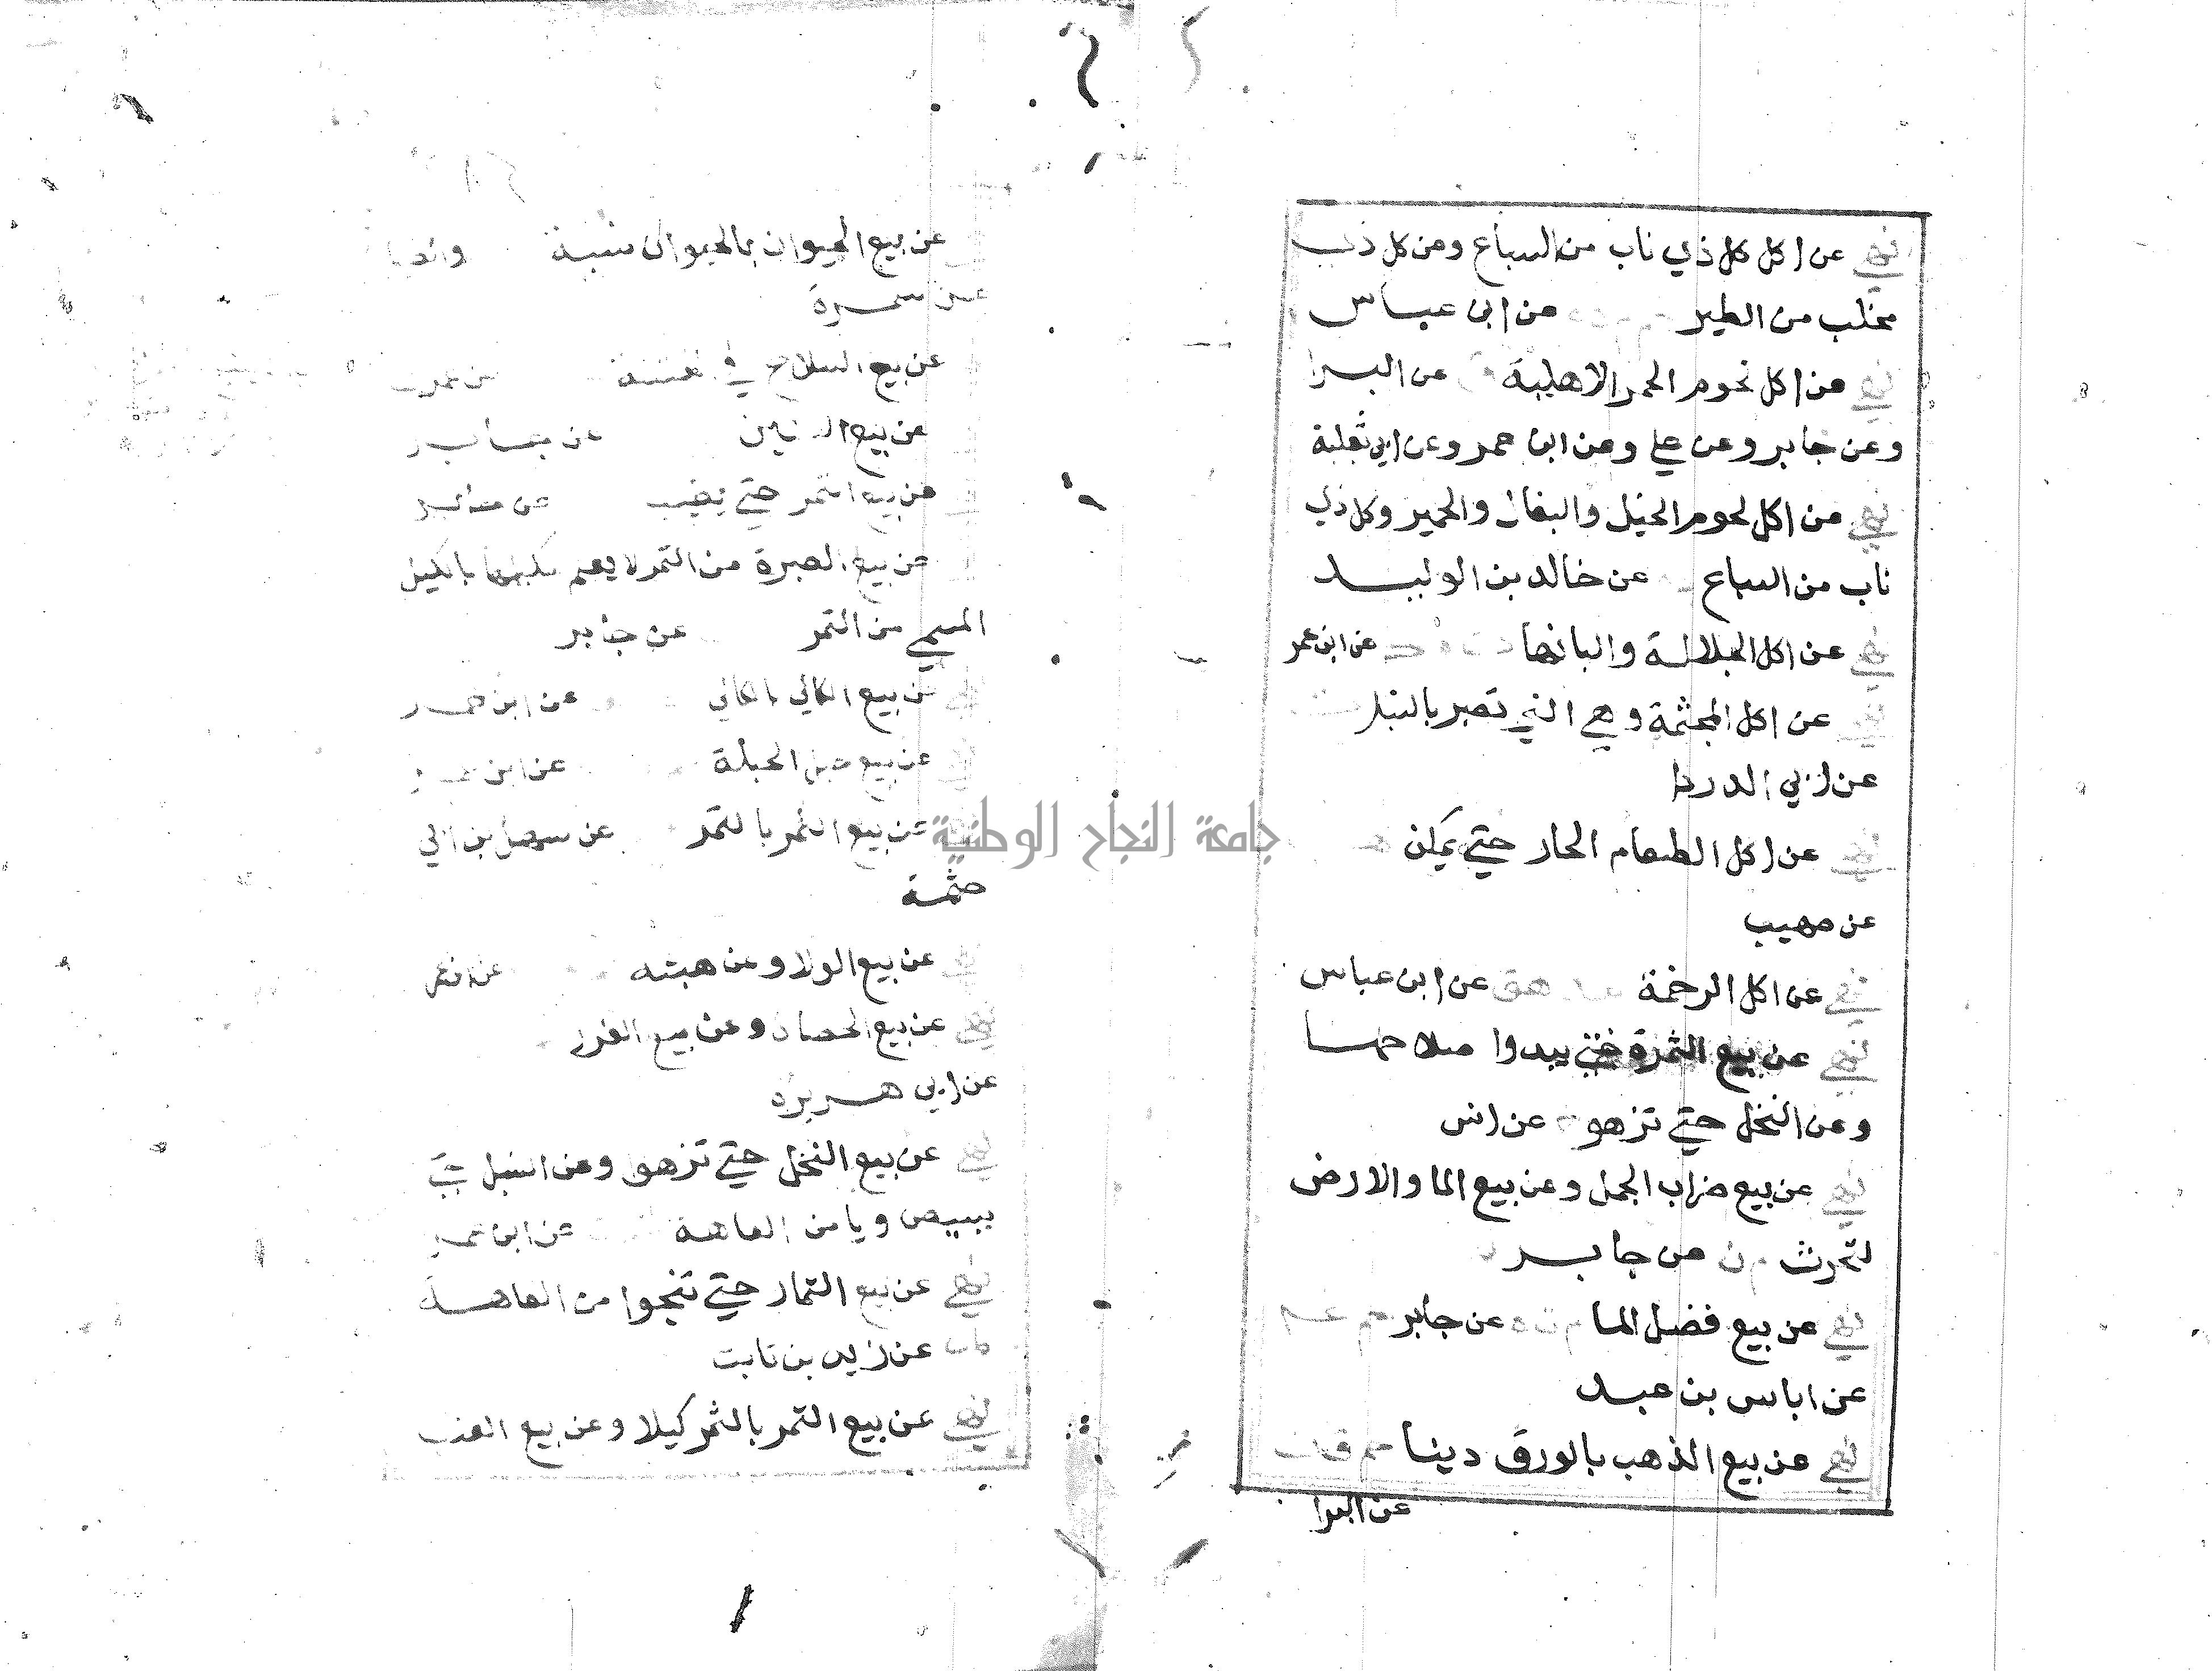 نهي عن اكل كل ذي ناب من السباع ومن كل ذي
مخلب من الطير عن ابن عباس
نهي عن اكل لحوم الحمر الاهلية عن البرا
وعن جابر وعن علي وعن ابن عمر وعن ابي ثعلبة
نهي عن اكل لحوم الخيل والبغال والحمير وكل ذي
ناب من السباع عن خالد بن الوليد
نهي عن اكل الجلالة والبانها عن ابن عمر
نهي عن اكل المجثمة وهي التي تصبر بالنبل
عن ابي الدردا
نهي عن اكل الطعام الحار حتي يمكن
عن صهيب
نهي عن اكل الرخمة عد هق عن ابن عباس
نهي عن بيع الثمرة حتي يبدوا صلاحها
وعن النخل حتي تزهو عن انس
نهي عن بيع ضراب الجمل وعن بيع الما والارض
لتحرث م ن عن جابر
نهي عن بيع فضل الما م ن ه عن جابر حم عد
عن اياس بن عبد
نهي عن بيع الذهب بالورق دينا حم ق ن
عن البرا
عن بيع الحيوان بالحيوان نسية
عن سمرة
عن بيع السلاح في الفتنة عن عمران
عن بيع السنين عن جابر
عن بيع الثمر حتي يطيب عن جابر
عن بيع الصبرة من التمر لا يعلم مكيلها بالكيل
المسمي من التمر عن جابر
عن بيع الكالي بالكالي عن ابن عمر
عن بيع حبل الحبلة عن ابن عمر
عن بيع الثمر بالتمر عن سهل بن ابي
حثمة
جامعة النجاح الوطنية
عن بيع الولا وعن هبته
نهي عن بيع الحصاة وعن بيع الغرر
عن ابي هريره
نهي عن بيع النخل حتي تزهو وعن السنبل حتي
يبيض ويامن العاهة عن ابن عمر
نهي عن بيع الثمار حتي تنجوا من العاهة
عن زيد بن ثابت
نهي عن بيع الثمر بالتمر كيلا وعن بيع العنب